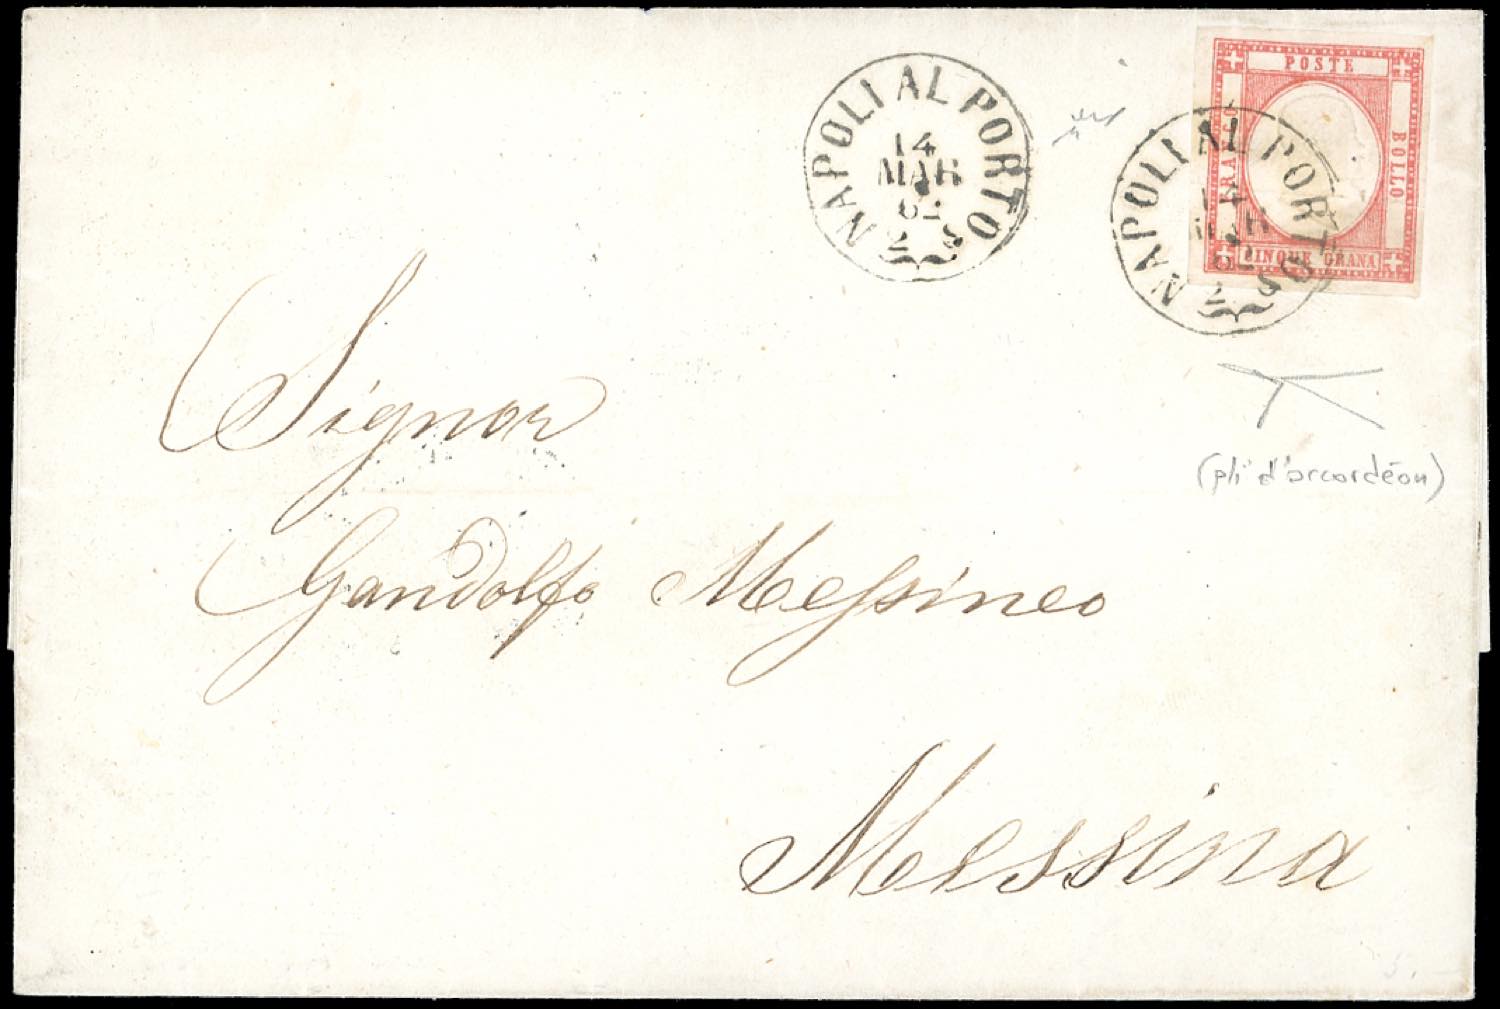 NAPOLI AL PORTO
14
MAR
62
2 S
POSTE
FRANCO
BOLLO
CINQUE GRANA
NAPOLI AL PORTO
14
MAR
62
2 S
(pli d'accordéon)
Signor
Gandolfo Messineo
Messina